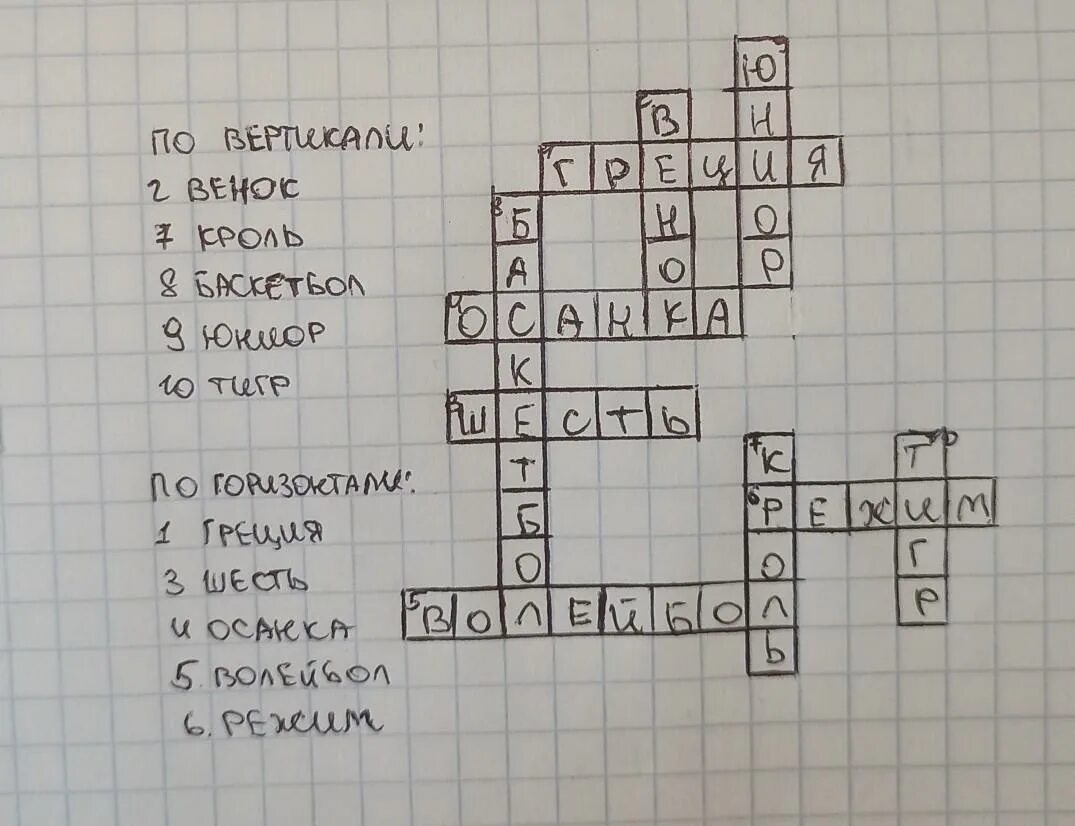 ПО ВЕРТИКАЛИ:
2 ВЕНОК
7 КРОЛЬ
8 БАСКЕТБОЛ
9 ЮНИОР
10 ТИГР
ПО ГОРИЗОНТАЛИ:
1 ГРЕЦИЯ
3 ШЕСТЬ
4 ОСАНКА
5. ВОЛЕЙБОЛ
6. РЕЖИМ
Ю
В Н
ГРЕЦИЯ
Б Н О
А О Р
ОСАНКА
К
ШЕСТЬ
Т К Т
Б РЕЖИМ
О О Г
ВОЛЕЙБОЛ Р
Ь